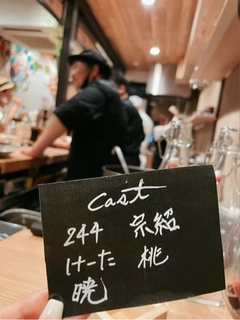 Cast
244 宗紹
けーた 桃
暁